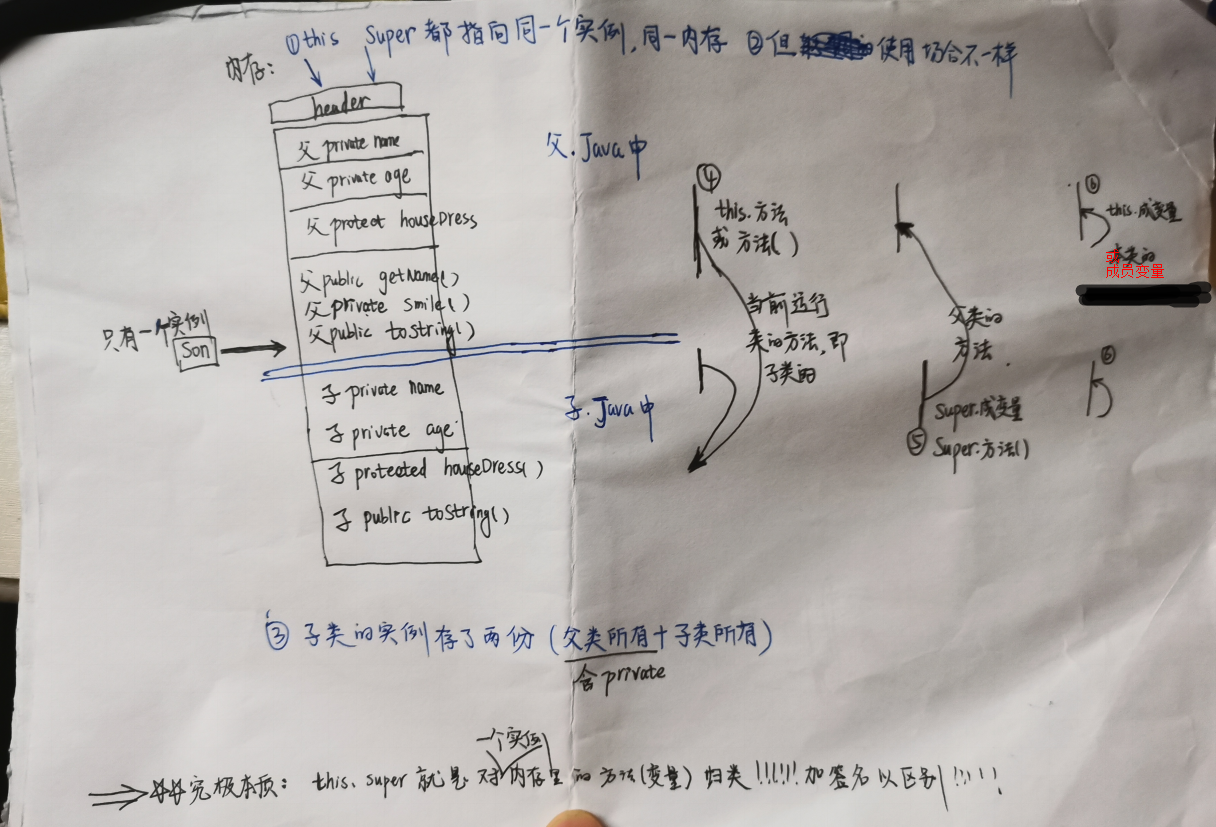 ①this Super都指向同一个实例,同一内存 ②但使用场合不一样
内存:
header
父 private name
父 private age
父 protect houseDress
父public getName()
父 private smile()
父public toString()
只有一个实例
Son
子 private name
子 private age
子 protected houseDress()
子 public toString()
父.Java中
子.Java中
④
this.方法
或 方法()
当前运行
类的方法,即
子类的
父类的
方法.
Super.成变量
⑤ Super.方法()
⑥
this.成变量
或
成员变量
⑥
③ 子类的实例存了两份(父类所有+子类所有)
含private
一个实例
究极本质: this、super就是对内存里的方法(变量)归类!!!!!!加签名以区别!!!!!